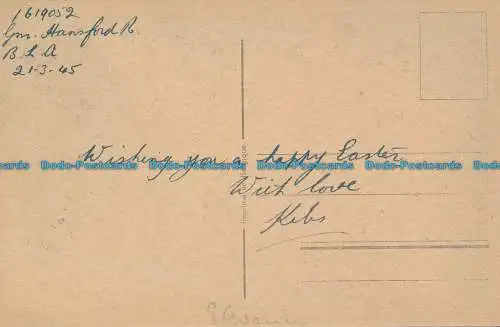 1619052
Gnr. Hansford R.
B L A
21-3-45
Wishing you a happy Easter
With love
Kebs
Dodo-Postcards Dodo-Postcards Dodo-Postcards Dodo-Postcards Dodo-Postcards Dodo-Postcards